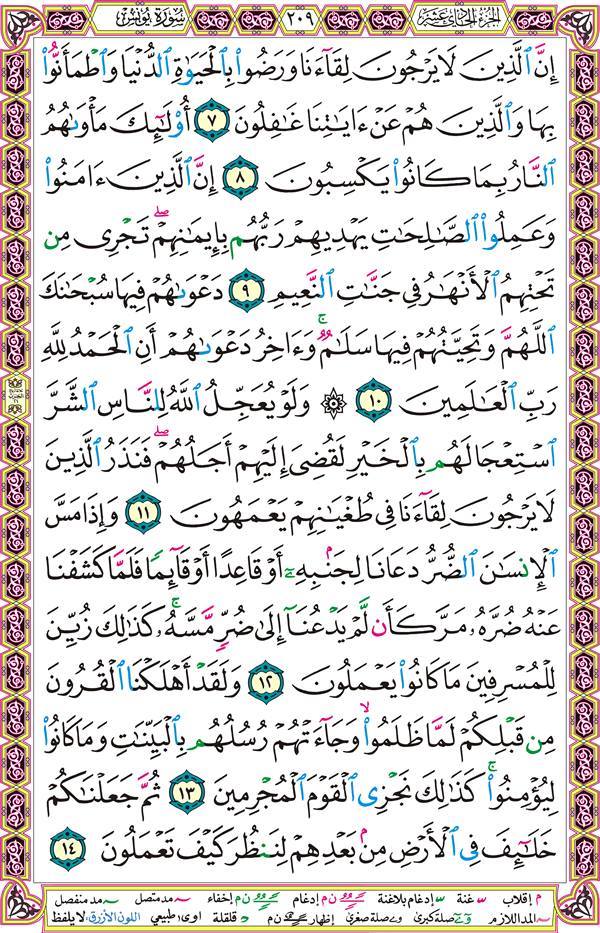 الجزء الحادي عشر
٢٠٩
سورة يونس
إِنَّ ٱلَّذِينَ لَا يَرْجُونَ لِقَآءَنَا وَرَضُوا۟ بِٱلْحَيَوٰةِ ٱلدُّنْيَا وَٱطْمَأَنُّوا۟
بِهَا وَٱلَّذِينَ هُمْ عَنْ ءَايَٰتِنَا غَٰفِلُونَ ٧ أُو۟لَٰٓئِكَ مَأْوَىٰهُمُ
ٱلنَّارُ بِمَا كَانُوا۟ يَكْسِبُونَ ٨ إِنَّ ٱلَّذِينَ ءَامَنُوا۟
وَعَمِلُوا۟ ٱلصَّٰلِحَٰتِ يَهْدِيهِمْ رَبُّهُم بِإِيمَٰنِهِمْ ۖ تَجْرِى مِن
تَحْتِهِمُ ٱلْأَنْهَٰرُ فِى جَنَّٰتِ ٱلنَّعِيمِ ٩ دَعْوَىٰهُمْ فِيهَا سُبْحَٰنَكَ
ٱللَّهُمَّ وَتَحِيَّتُهُمْ فِيهَا سَلَٰمٌ ۚ وَءَاخِرُ دَعْوَىٰهُمْ أَنِ ٱلْحَمْدُ لِلَّهِ
رَبِّ ٱلْعَٰلَمِينَ ١٠ ۞ وَلَوْ يُعَجِّلُ ٱللَّهُ لِلنَّاسِ ٱلشَّرَّ
ٱسْتِعْجَالَهُم بِٱلْخَيْرِ لَقُضِىَ إِلَيْهِمْ أَجَلُهُمْ ۖ فَنَذَرُ ٱلَّذِينَ
لَا يَرْجُونَ لِقَآءَنَا فِى طُغْيَٰنِهِمْ يَعْمَهُونَ ١١ وَإِذَا مَسَّ
ٱلْإِنسَٰنَ ٱلضُّرُّ دَعَانَا لِجَنۢبِهِۦٓ أَوْ قَاعِدًا أَوْ قَآئِمًا فَلَمَّا كَشَفْنَا
عَنْهُ ضُرَّهُۥ مَرَّ كَأَن لَّمْ يَدْعُنَآ إِلَىٰ ضُرٍّ مَّسَّهُۥ ۚ كَذَٰلِكَ زُيِّنَ
لِلْمُسْرِفِينَ مَا كَانُوا۟ يَعْمَلُونَ ١٢ وَلَقَدْ أَهْلَكْنَا ٱلْقُرُونَ
مِن قَبْلِكُمْ لَمَّا ظَلَمُوا۟ ۙ وَجَآءَتْهُمْ رُسُلُهُم بِٱلْبَيِّنَٰتِ وَمَا كَانُوا۟
لِيُؤْمِنُوا۟ ۚ كَذَٰلِكَ نَجْزِى ٱلْقَوْمَ ٱلْمُجْرِمِينَ ١٣ ثُمَّ جَعَلْنَٰكُمْ
خَلَٰٓئِفَ فِى ٱلْأَرْضِ مِنۢ بَعْدِهِمْ لِنَنظُرَ كَيْفَ تَعْمَلُونَ ١٤
م إقلاب غنة إدغام بلاغنة ن م إدغام ن م إخفاء مد متصل مد منفصل
المد اللازم صلة كبرى صلة صغرى إظهار ن م قلقلة اوى طبيعي اللون الأزرق: لا يلفظ